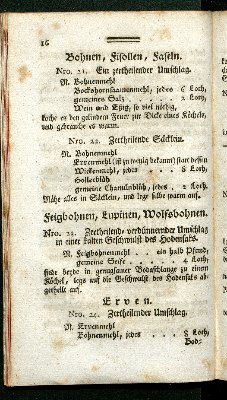 16
Bohnen, Fisollen, Faseln.
Nro. 21. Ein zertheilender Umschlag.
℞. Bohnenmehl
Bockshornsaamenmehl, jedes 6 Loth,
gemeines Salz . . . 2 Loth,
Wein und Eßig, so viel nöthig,
koche es bey gelindem Feuer zur Dicke eines Köchels,
und gebrauche es warm.
Nro. 22. Zertheilende Säcklein.
℞. Bohnenmehl
Ervenmehl (ist zu wenig bekannt) statt dessen
Wickenmehl, jedes . . 8 Loth,
Hollerblüh
gemeine Chamillenblüh, jedes . 2 Loth.
Nähe alles in Säcklein, und lege selbe warm auf.
Feigbohnen, Lupinen, Wolfsbohnen.
Nro. 23. Zertheilende verdünnender Umschlag
in einer kalten Geschwulst des Hodensaks.
℞. Feigbohnenmehl . . ein halb Pfund,
gemeine Seife . . . 4 Loth,
siede beyde in genugsamer Bodaschlauge zu einem
Köchel, legs auf die Geschwulst des Hodensaks ab-
getheilt auf.
Erven.
Nro. 24. Zertheilender Umschlag.
℞. Ervenmehl
Bohnenmehl, jedes . . . 8 Loth,
Bod-